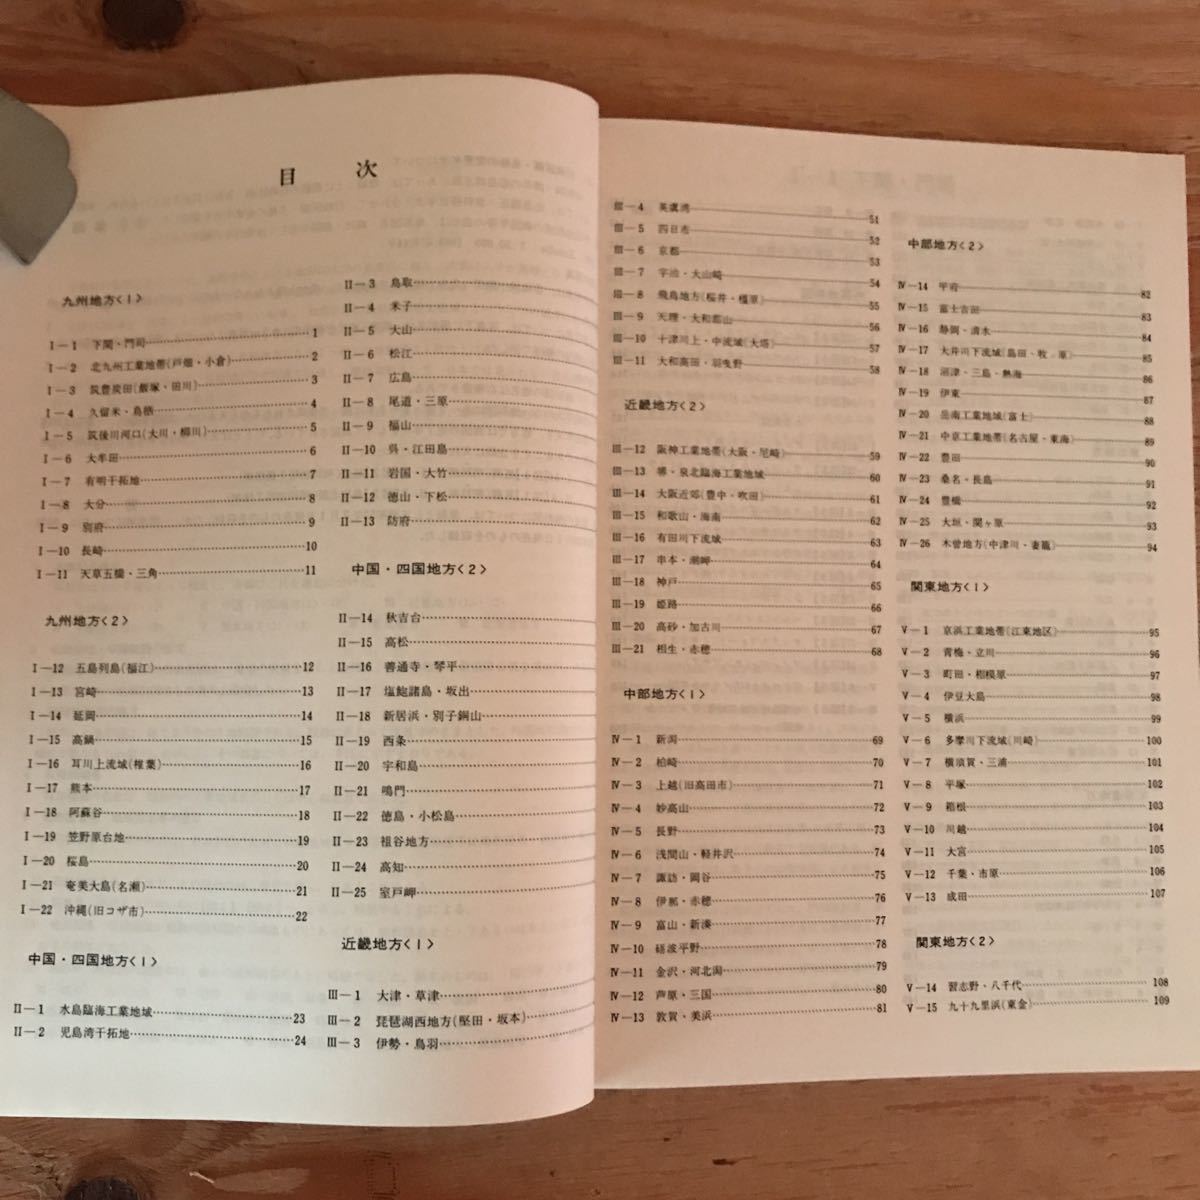 目　次
九州地方〈1〉
Ⅰ－1　下関・門司……1
Ⅰ－2　北九州工業地帯(戸畑・小倉)……2
Ⅰ－3　筑豊炭田(飯塚・田川)……3
Ⅰ－4　久留米・鳥栖……4
Ⅰ－5　筑後川河口(大川・柳川)……5
Ⅰ－6　大牟田……6
Ⅰ－7　有明干拓地……7
Ⅰ－8　大分……8
Ⅰ－9　別府……9
Ⅰ－10　長崎……10
Ⅰ－11　天草五橋・三角……11
九州地方〈2〉
Ⅰ－12　五島列島(福江)……12
Ⅰ－13　宮崎……13
Ⅰ－14　延岡……14
Ⅰ－15　高鍋……15
Ⅰ－16　耳川上流域(椎葉)……16
Ⅰ－17　熊本……17
Ⅰ－18　阿蘇谷……18
Ⅰ－19　笠野原台地……19
Ⅰ－20　桜島……20
Ⅰ－21　奄美大島(名瀬)……21
Ⅰ－22　沖縄(旧コザ市)……22
中国・四国地方〈1〉
Ⅱ－1　水島臨海工業地域……23
Ⅱ－2　児島湾干拓地……24
Ⅱ－3　鳥取……
Ⅱ－4　米子……
Ⅱ－5　大山……
Ⅱ－6　松江……
Ⅱ－7　広島……
Ⅱ－8　尾道・三原……
Ⅱ－9　福山……
Ⅱ－10　呉・江田島……
Ⅱ－11　岩国・大竹……
Ⅱ－12　徳山・下松……
Ⅱ－13　防府……
中国・四国地方〈2〉
Ⅱ－14　秋吉台……
Ⅱ－15　高松……
Ⅱ－16　善通寺・琴平……
Ⅱ－17　塩飽諸島・坂出……
Ⅱ－18　新居浜・別子銅山……
Ⅱ－19　西条……
Ⅱ－20　宇和島……
Ⅱ－21　鳴門……
Ⅱ－22　徳島・小松島……
Ⅱ－23　祖谷地方……
Ⅱ－24　高知……
Ⅱ－25　室戸岬……
近畿地方〈1〉
Ⅲ－1　大津・草津……
Ⅲ－2　琵琶湖西地方(堅田・坂本)……
Ⅲ－3　伊勢・鳥羽……
Ⅲ－4　英虞湾……51
Ⅲ－5　四日市……52
Ⅲ－6　京都……53
Ⅲ－7　宇治・大山崎……54
Ⅲ－8　飛鳥地方(桜井・橿原)……55
Ⅲ－9　天理・大和郡山……56
Ⅲ－10　十津川上・中流域(大塔)……57
Ⅲ－11　大和高田・羽曳野……58
近畿地方〈2〉
Ⅲ－12　阪神工業地帯(大阪・尼崎)……59
Ⅲ－13　堺・泉北臨海工業地域……60
Ⅲ－14　大阪近郊(豊中・吹田)……61
Ⅲ－15　和歌山・海南……62
Ⅲ－16　有田川下流域……63
Ⅲ－17　串本・潮岬……64
Ⅲ－18　神戸……65
Ⅲ－19　姫路……66
Ⅲ－20　高砂・加古川……67
Ⅲ－21　相生・赤穂……68
中部地方〈1〉
Ⅳ－1　新潟……69
Ⅳ－2　柏崎……70
Ⅳ－3　上越(旧高田市)……71
Ⅳ－4　妙高山……72
Ⅳ－5　長野……73
Ⅳ－6　浅間山・軽井沢……74
Ⅳ－7　諏訪・岡谷……75
Ⅳ－8　伊那・赤穂……76
Ⅳ－9　富山・新湊……77
Ⅳ－10　砺波平野……78
Ⅳ－11　金沢・河北潟……79
Ⅳ－12　芦原・三国……80
Ⅳ－13　敦賀・美浜……81
中部地方〈2〉
Ⅳ－14　甲府……82
Ⅳ－15　富士吉田……83
Ⅳ－16　静岡・清水……84
Ⅳ－17　大井川下流域(島田・牧ノ原)……85
Ⅳ－18　沼津・三島・熱海……86
Ⅳ－19　伊東……87
Ⅳ－20　岳南工業地域(富士)……88
Ⅳ－21　中京工業地帯(名古屋・東海)……89
Ⅳ－22　豊田……90
Ⅳ－23　桑名・長島……91
Ⅳ－24　豊橋……92
Ⅳ－25　大垣・関ヶ原……93
Ⅳ－26　木曽地方(中津川・妻籠)……94
関東地方〈1〉
Ⅴ－1　京浜工業地帯(江東地区)……95
Ⅴ－2　青梅・立川……96
Ⅴ－3　町田・相模原……97
Ⅴ－4　伊豆大島……98
Ⅴ－5　横浜……99
Ⅴ－6　多摩川下流域(川崎)……100
Ⅴ－7　横須賀・三浦……101
Ⅴ－8　平塚……102
Ⅴ－9　箱根……103
Ⅴ－10　川越……104
Ⅴ－11　大宮……105
Ⅴ－12　千葉・市原……106
Ⅴ－13　成田……107
関東地方〈2〉
Ⅴ－14　習志野・八千代……108
Ⅴ－15　九十九里浜(東金)……109